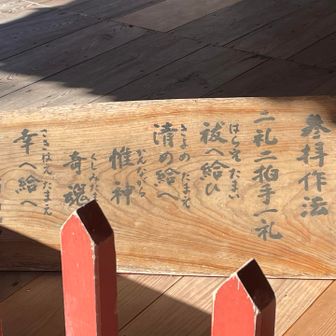 参拝作法
二礼二拍手一礼
はらえ たまい
祓へ給ひ
きよめ たまえ
清め給へ
かんながら
惟神
くしみたま
奇魂
さきはえ たまえ
幸へ給へ